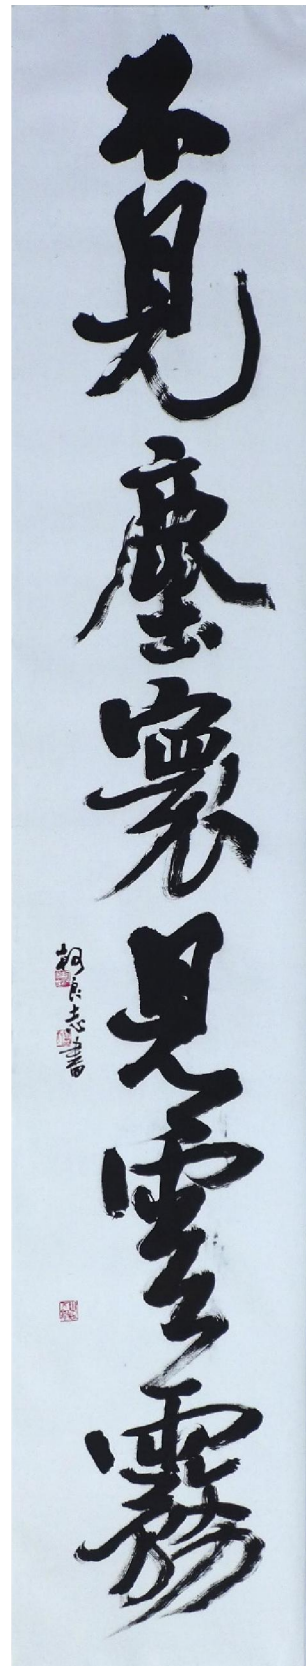 不見塵寰見雲霧
良志書